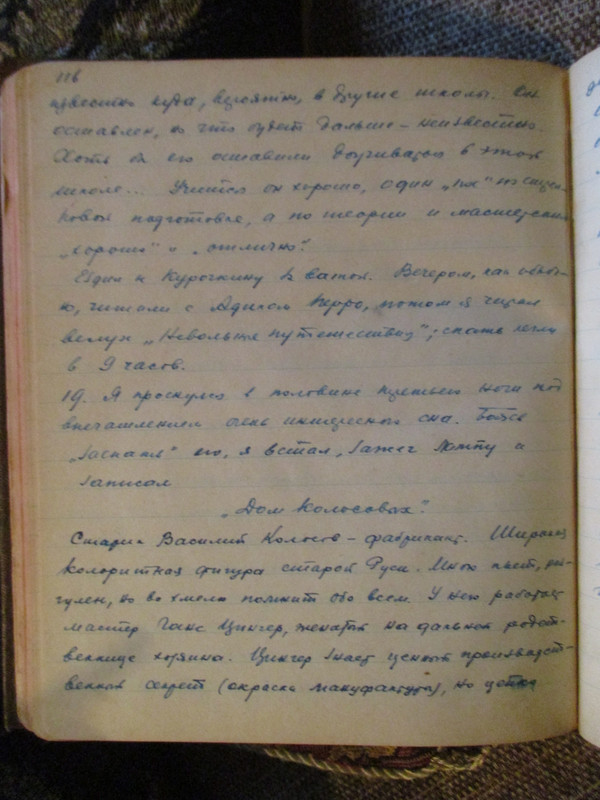 116
известно куда, вероятно, в другие школы. Он
оставлен, но что будет дальше – неизвестно.
Хоть бы его оставили доучиваться в этой
школе... Учится он хорошо, один „пос“ по
ковой подготовке, а по теории и мастерским
„хорошо“ и „отлично“.
Ездил к Курочкину в ватол. Вечером, как обыч-
но, читали с Адиком Перро, потом я читал
вслух „Невольные путешествия“; спать легли
в 9 часов.
19. Я проснулся в половине третьего ночи под
впечатлением очень интересного сна. Боясь
„заспать“ его, я встал, зажег лампу и
записал
„Дом Колосовых“.
Старик Василий Колосов – фабрикант. Широкая
колоритная фигура старой Руси. Много пьет, раз-
гулен, но во хмелю помнит обо всем. У него работает
мастер Ганс Цингер, женатый на дальней родст-
веннице хозяина. Цингер знает ценный производст-
венный секрет (окраска мануфактуры), но